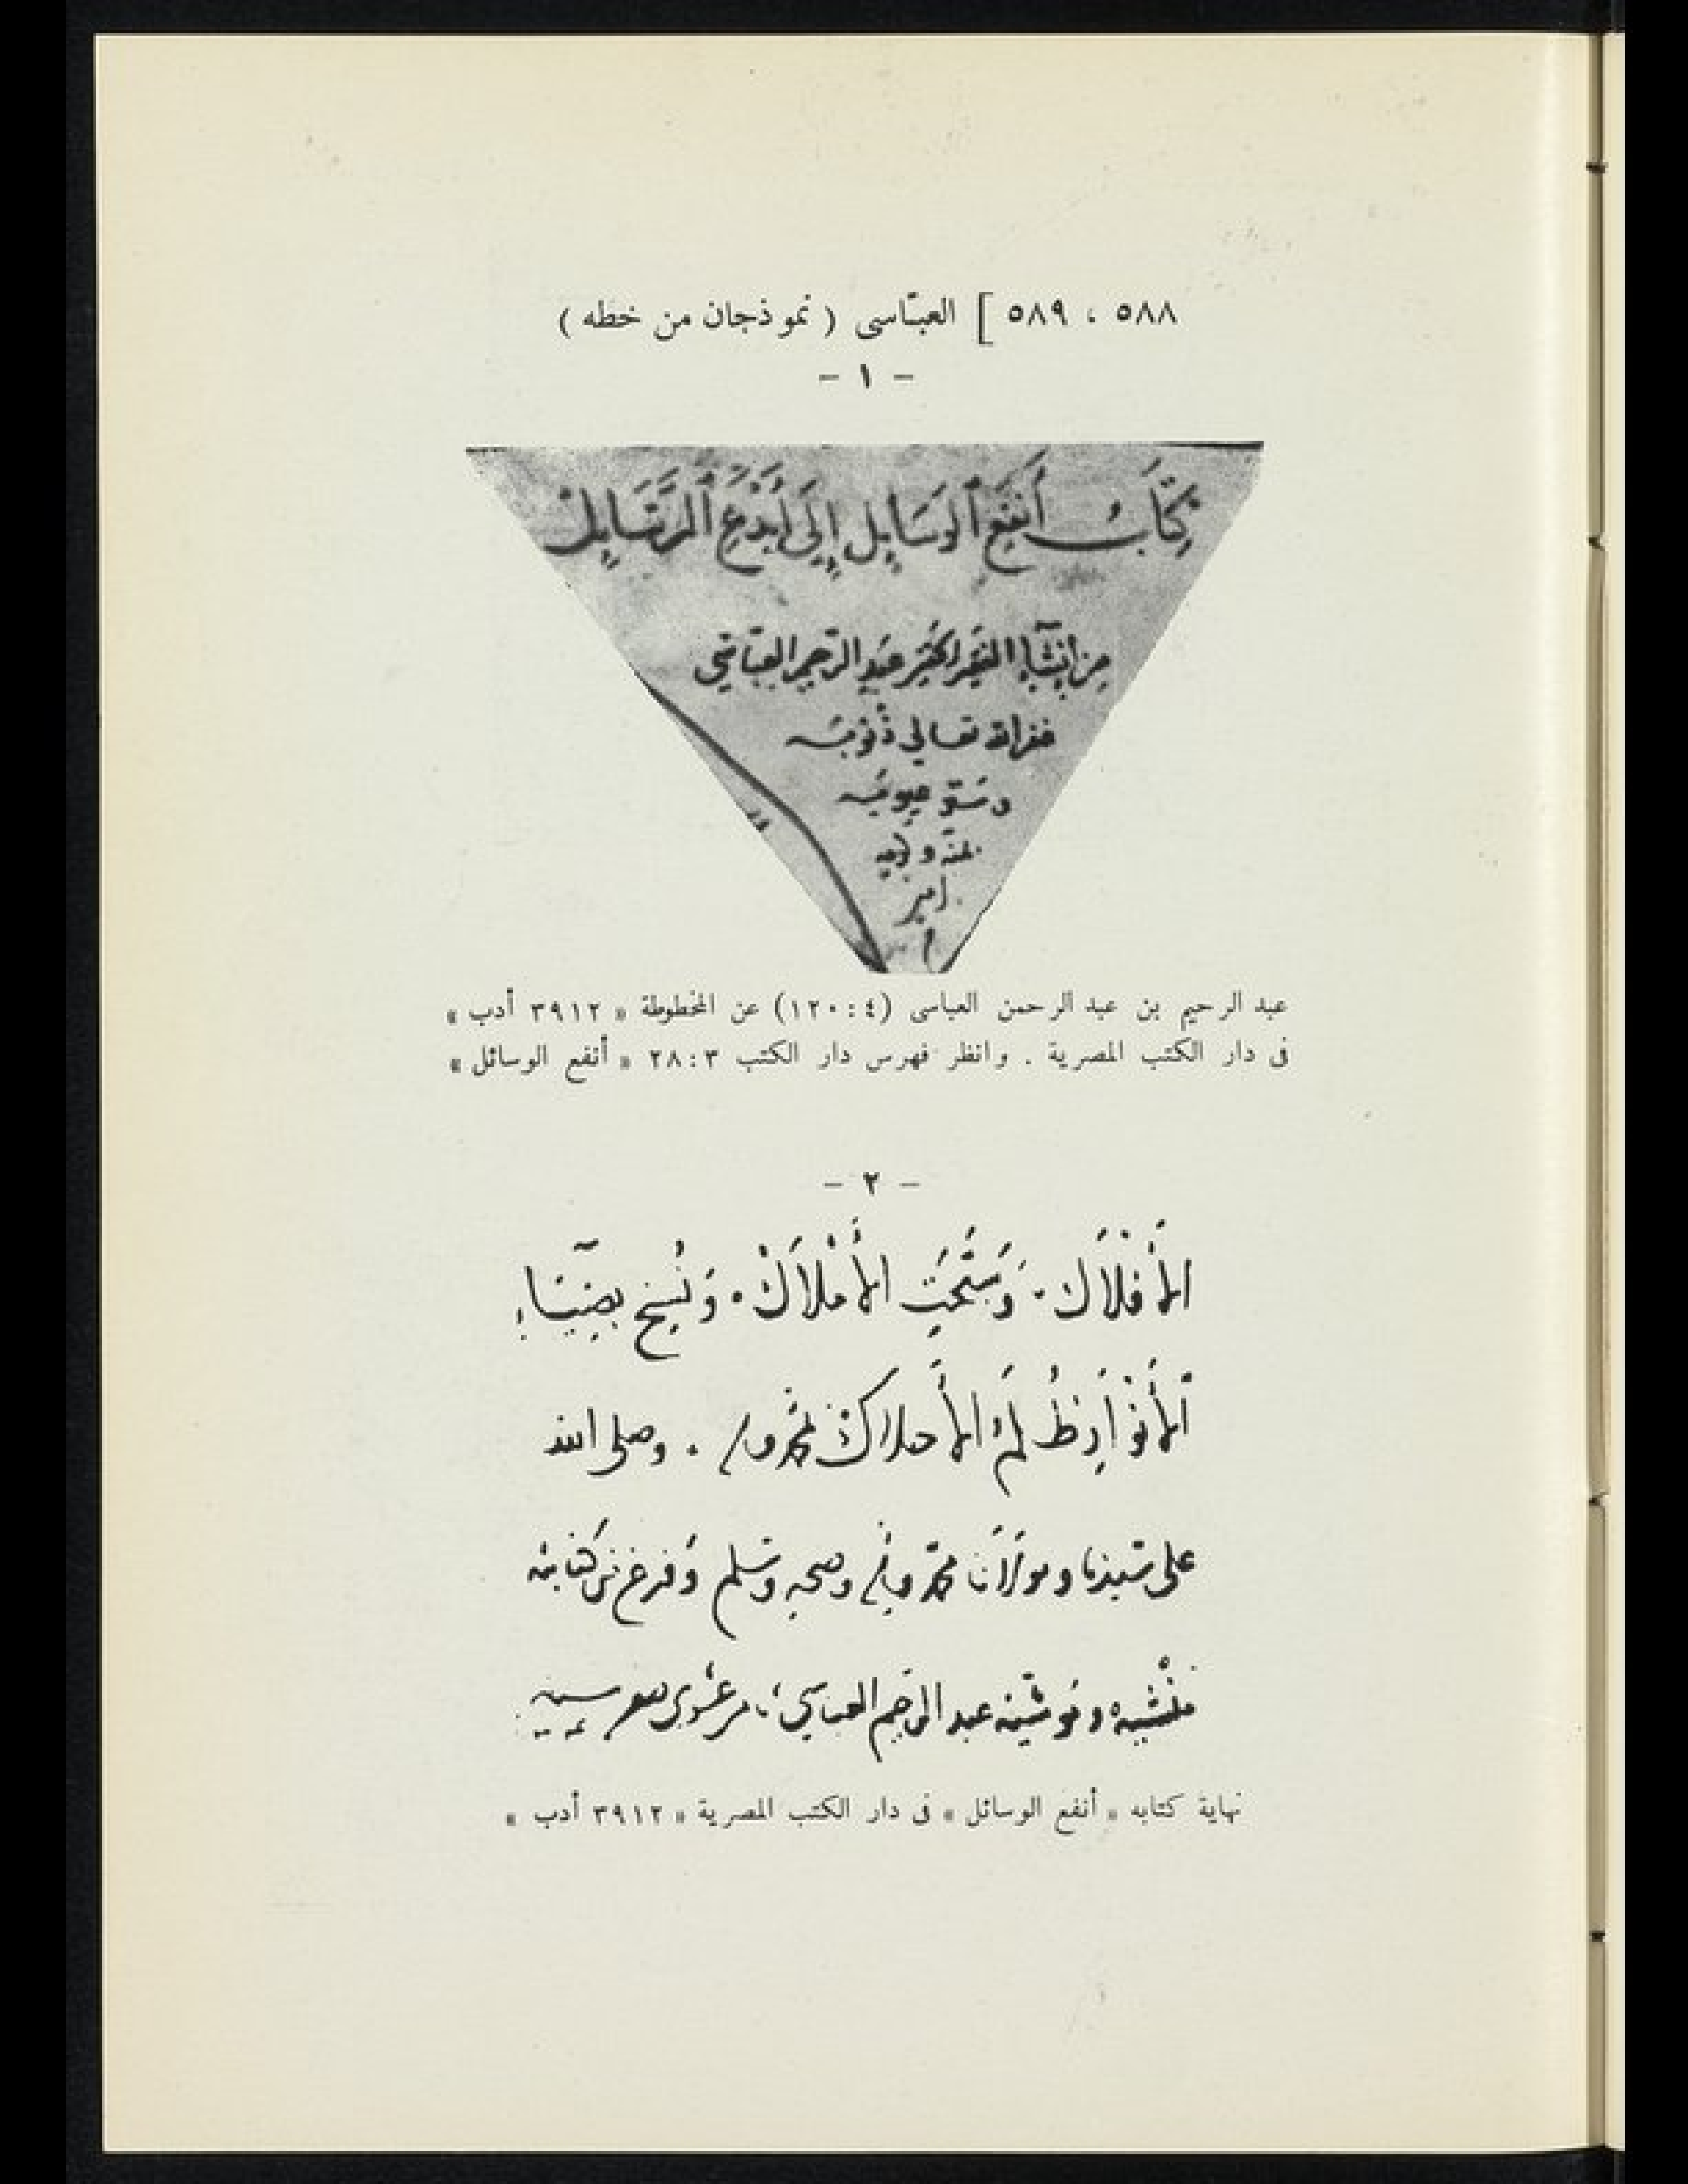 ٥٨٨ ، ٥٨٩ ] العبّاسى ( نموذجان من خطه )
- ١ -
كِتَابُ أَنْفَعِ ٱلْوَسَايِلِ إِلَى أَبْدَعِ ٱلرَّسَايِلْ
من إنشاء الفقير الحقير عبد الرحيم العباسي
غفر الله تعالى ذنوبه
وستر عيوبه
بمنه وكرمه
امين
م
عبد الرحيم بن عبد الرحمن العباسى (٤ : ١٢٠) عن المخطوطة « ٣٩١٢ أدب »
فى دار الكتب المصرية . وانظر فهرس دار الكتب ٣ : ٢٨ « أنفع الوسائل »
- ٢ -
الأَفْلَاك . وَسَبَّحَتِ الأَمْلَاكْ . وَنُسِخَ بِضِيَآءِ
ٱلأَنْوَارِ ظُلَمُ الأَحلاك بمحمد وآله . وصلى الله
على سيدنا ومولانا محمد وآله وصحبه وسلم وفرغ من كتابته
منشيه عبد الرحيم العباسي
نهاية كتابه « أنفع الوسائل » فى دار الكتب المصرية « ٣٩١٢ أدب »